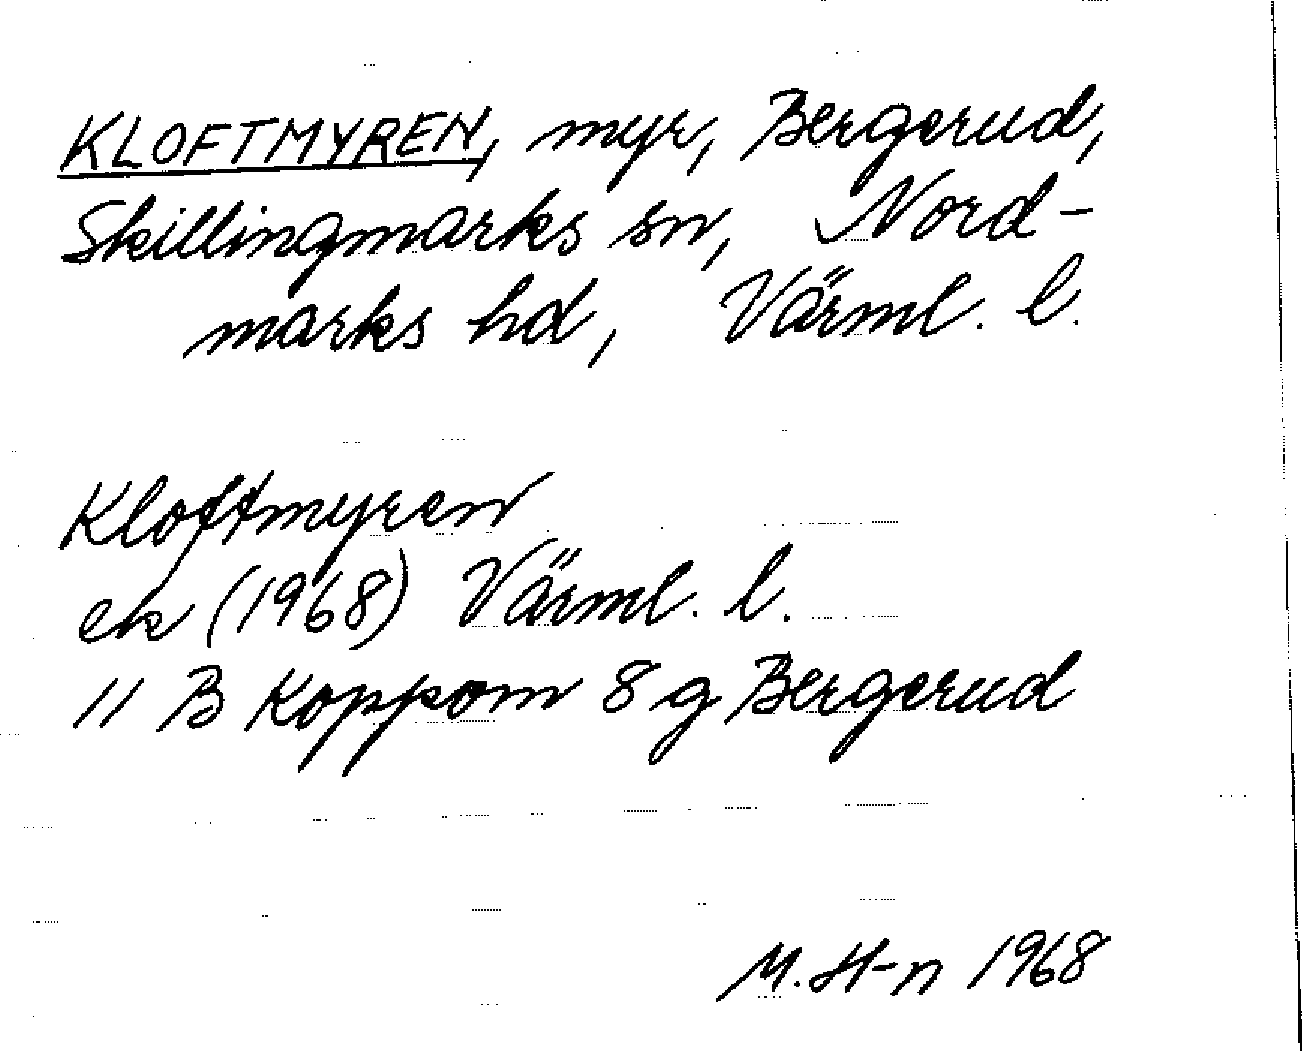 KLOFTMYREN, myr, Bergerud,
Skillingmarks sn, Nord-
marks hd, Värml. l.
Kloftmyren
ek (1968) Värml. l.
11 B Koppom 8 g Bergerud
M. H-n 1968